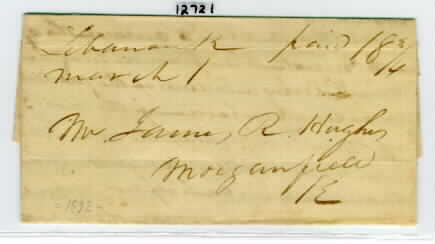 12721
Lebanon K paid 18 3/4
March 1
Mr. James R. Hughes
Morganfield
K
- 1832 -